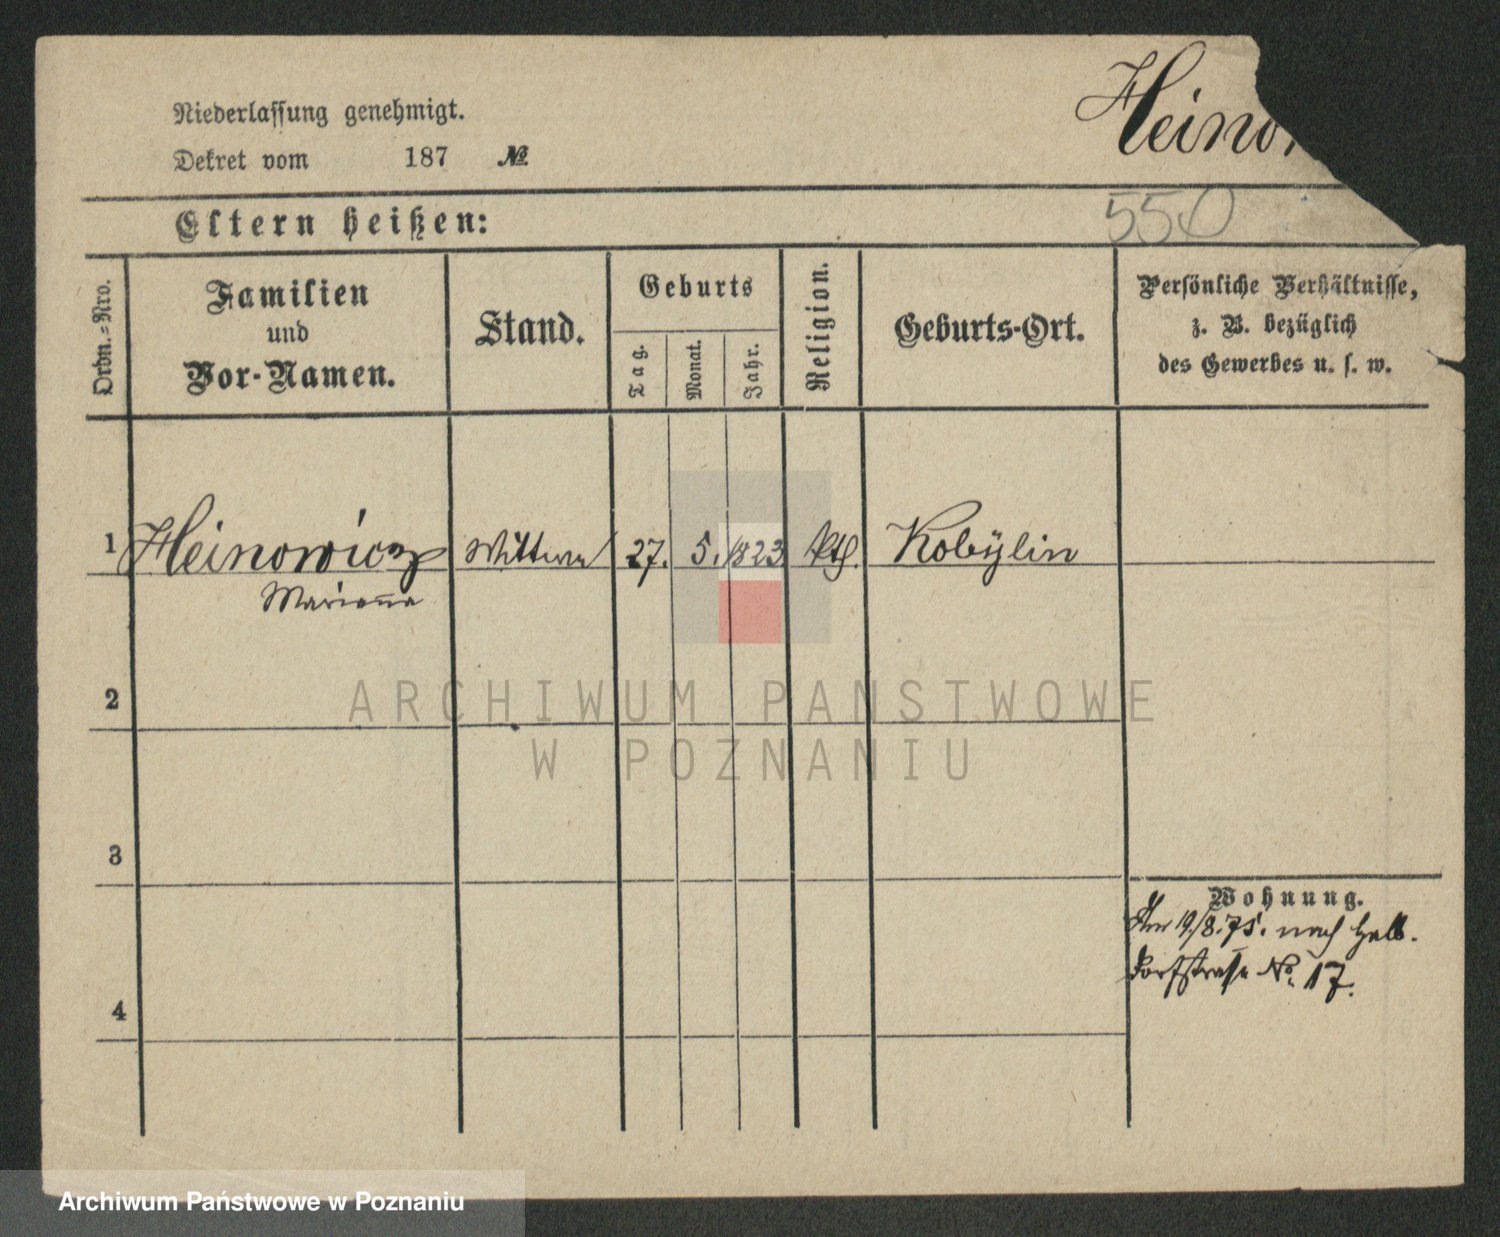 Niederlassung genehmigt.
Dekret vom 187 №
Heino
550
Eltern heißen:
Ordn.-Nro.
Familien
und
Vor-Namen.
Stand.
Geburts
Tag.
Monat.
Jahr.
Religion.
Geburts-Ort.
Persönliche Verhältnisse,
z. B. bezüglich
des Gewerbes u. s. w.
1 Heinowicz Wittwe 27. 5. 1823 kth. Kobÿlin
Marianna
2
ARCHIWUM PAŃSTWOWE
W POZNANIU
3
Wohnung.
19/8.75. nach Halb-
dorfstrasse No. 17.
4
Archiwum Państwowe w Poznaniu